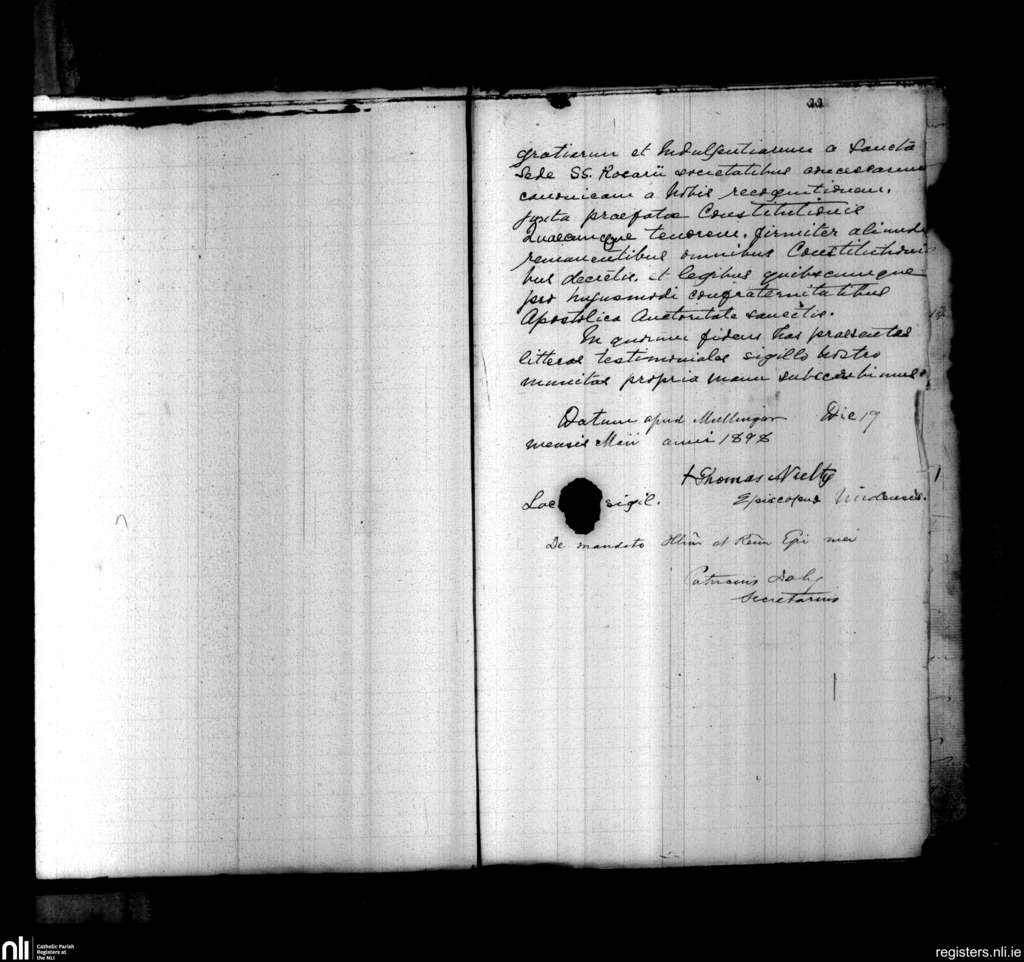 22
gratiarum et Indulgentiarum a Sancta
Sede SS. Rosarii societatibus concessarum
canonicam a Nobis recognitionem.
juxta praefatae Constitutionis
Quaecumque tenorem. firmiter aliunde
remanentibus omnibus Constitutioni
bus decretis. et legibus quibuscumque
pro hujusmodi confraternitatibus
Apostolica Auctoritate sancitis.
In quorum fidem has praesentes
litteras testimoniales sigillo nostro
munitas propria manu subscribimus.
Datum apud Mullingar Die 17
mensis Maii anni 1898
† Thomas Nulty
Loc sigil. Episcopus
De mandato Illmi et Revmi Epi mei
Patricius Daly
Secretarius
nli Catholic Parish
Registers at
the NLI
registers.nli.ie